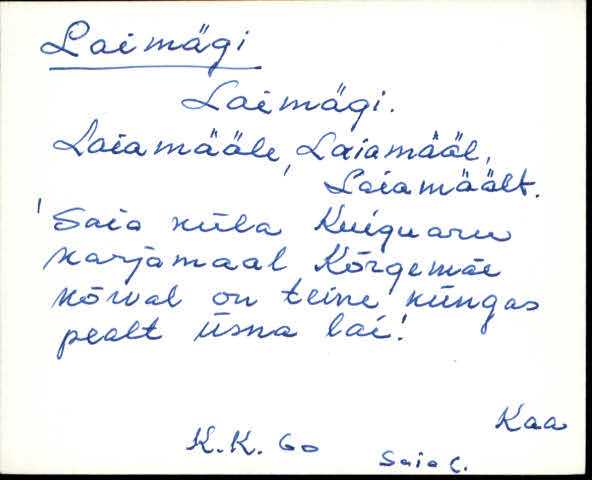 Laimägi
Laimägi.
Laiamääle, Laiamääl,
Laiamäält.
'Saia küla Kuiguaru
karjamaal Kõrgemäe
kõrval on teine küngas
pealt üsna lai!
Kaa
K.K. 60
Saia C.